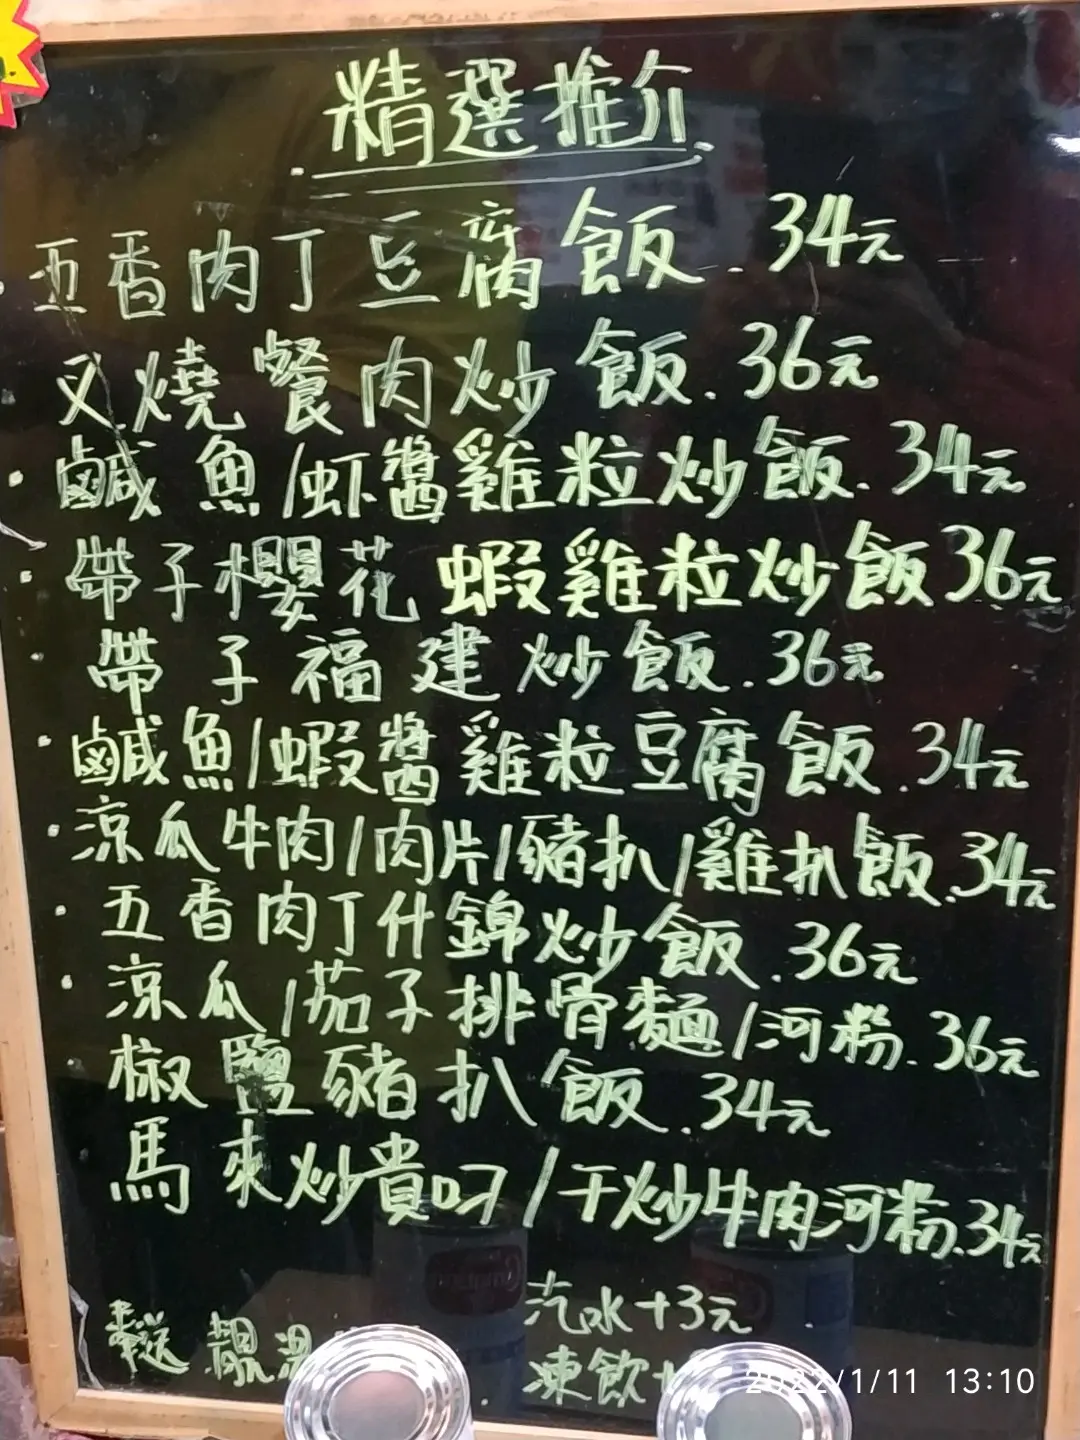 精選推介
五香肉丁豆腐飯.34元
叉燒餐肉炒飯.36元
鹹魚/虾醬雞粒炒飯.34元
帶子櫻花蝦雞粒炒飯36元
帶子福建炒飯.36元
鹹魚/蝦醬雞粒豆腐飯.34元
涼瓜牛肉/肉片/豬扒/雞扒飯.34元
五香肉丁什錦炒飯.36元
涼瓜/茄子排骨麵/河粉.36元
椒鹽豬扒飯.34元
馬來炒貴叼/干炒牛肉河粉.34元
汽水+3元
送 靚湯
凍飲+
2022/1/11 13:10